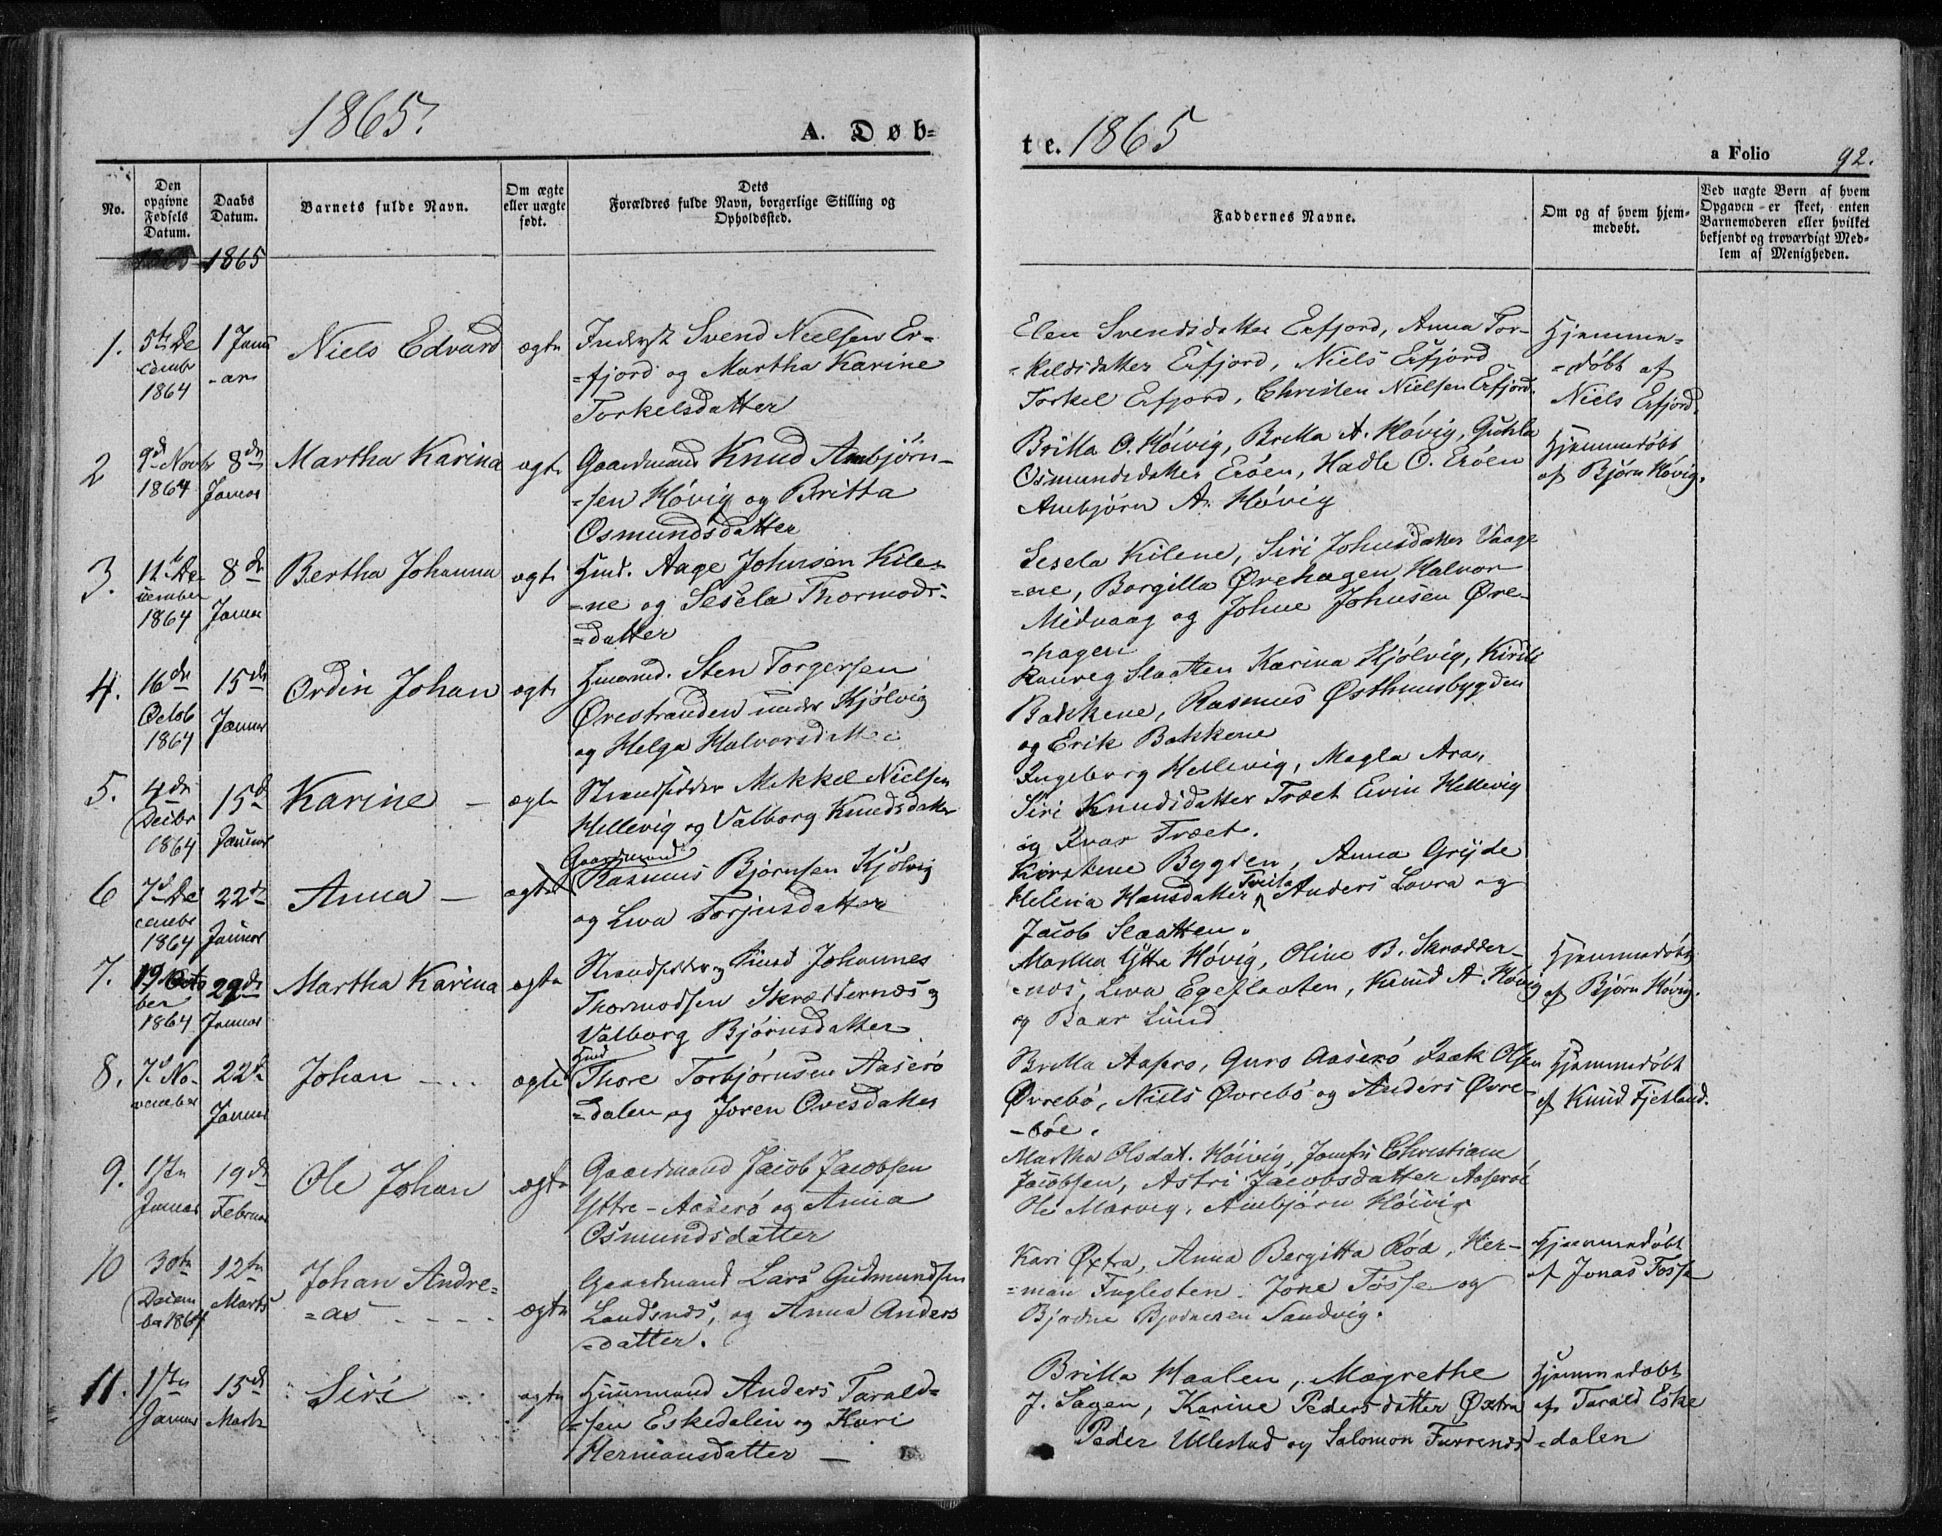 1865.
A. Døb-
te. 1865
a Folio 92.
No.
Den opgivne Fødsels Datum.
Daabs Datum.
Barnets fulde Navn.
Om ægte eller uægte født.
Dets Forældres fulde Navn, borgerlige Stilling og Opholdssted.
Faddernes Navne.
Om og af hvem hjemmedøbt.
Ved uægte Børn af hvem Opgaven er skeet, enten Barnemoderen eller hvilket bekjendt og troværdigt Medlem af Menigheden.
1865 1865
1. 5te De
cembr
1864
1 Janu
-ar
Niels Edvard
ægte
Inderst Svend Nielsen Er-
=fjord og Martha Karine
Torkelsdatter
Elen Svendsdatter Erfjord, Anna Tor-
=keldsdatter Erfjord, Niels Erfjord
Torkel Erfjord, Christen Nielsen Erfjord.
Hjemme-
=døbt af
Niels Erfjord.
2 9d Novbr
1864
8de
Januar
Martha Karina
ægte
Gaardmand Knud Ambjørn-
=sen Høvig og Britta
Osmundsdatter
Britta O. Høivig, Britta A. Høvig, Guhla
Osmundsdatter Erøen, Hadle O. Erøen
Ambjørn A. Høvig
Hjemmedøbt
af Bjørn Høvig.
3. 11te De
cember
1864
8de
Januar
Bertha Johanna
ægte
Hmd. Aage Johnsen Kile-
=ne og Sesela Thormods-
=datter
Sesela Kilene, Siri Johnsdatter Vaage
=ne, Borgilla Ørehagen, Halvor
Midvaag og Johne Johnsen Øre-
-hagen
4. 16de
Octob
1864
15de
Januar
Ordin Johan
ægte
Huusmd. Sten Torgersen
Ørestranden under Kjølvig
og Helga Halvorsdatter
Ranveg Slaatten Karina Kjølvig, Kirsti
Bakkene, Rasmus Østhuusbygden
og Erik Bakkene
5. 4de
Decbr
1864
15d
Januar
Karine -
ægte
Strandsidder Mikkel Nielsen
Hellevig og Valborg Knudsdatter
Ingeborg Hellevig, Magla Ara,
Siri Knudsdatter Træet Eivin Hellevig
og Ivar Træet.
6 7d De
cembr
1864
22de
Januar
Anna -
ægte
Gaardmand
Rasmus Bjørnsen Kjølvig
og Liva Torjusdatter
Kirstene Bygden, Anna Gryde
Helina Hansdatter Tveita Anders Lovra og
Jacob Slaatten.
7. 19 Octo
ber
1864
29de
Januar
Martha Karina
ægte
Strandsidder og Smed Johannes
Thormodsen Skræddernæs og
Valborg Bjørnsdatter
Martha Ytre Høvig, Oline B. Skrædder-
-næs, Liva Egeflaaten, Knud A. Høvig
og Baar Lund
Hjemmedøbt
af Bjørn Høvig.
8. 7d No-
vember
22de
Januar
Johan - ..
ægte
Hmd
Thore Torbjørnsen Aaserø
=dalen og Joren Ovesdatter
Britta Aasero, Guro Aaserö Isak Olsen
Øvrebø, Niels Øvrebø og Anders Øvre-
-bøe.
Hjemmedøbt
af Knud Fjetland.
9. 1ste
Januar
19de
Februar
Ole Johan
ægte
Gaardmand Jacob Jacobsen
Yttre-Aaserø og Anna
Osmundsdatter
Martha Olsdat. Høivig, Jomfru Christiane
Jacobsen, Astri Jacobsdatter Aaserøe
Ole Marvig, Ambjørn Høivig
10 30te
Decem
ber 1864
12te
Marts
Johan Andre-
=as
ægte
Gaardmand Lars Gudmundsen
Landsnæs, og Anna Anders
=datter.
Kari Øxtra, Anna Bergitta Rød, Her-
=man Fuglesten. Jone Tøsse og
Bjødne Bjødnesen Sandvig.
Hjemmedøbt
af Jonas Tøsse
11. 1ste
Januar
15de
Marts
Siri
ægte
Huusmand Anders Tarald-
=sen Eskedalen og Kari
Hermansdatter -
Britta Haalen, Magrethe
J. Sagen, Karine Pedersdatter Øxtra
Peder Ullestad og Salomon Furrenæs
Hjemmedøbt
af Tarald Eske
=dalen